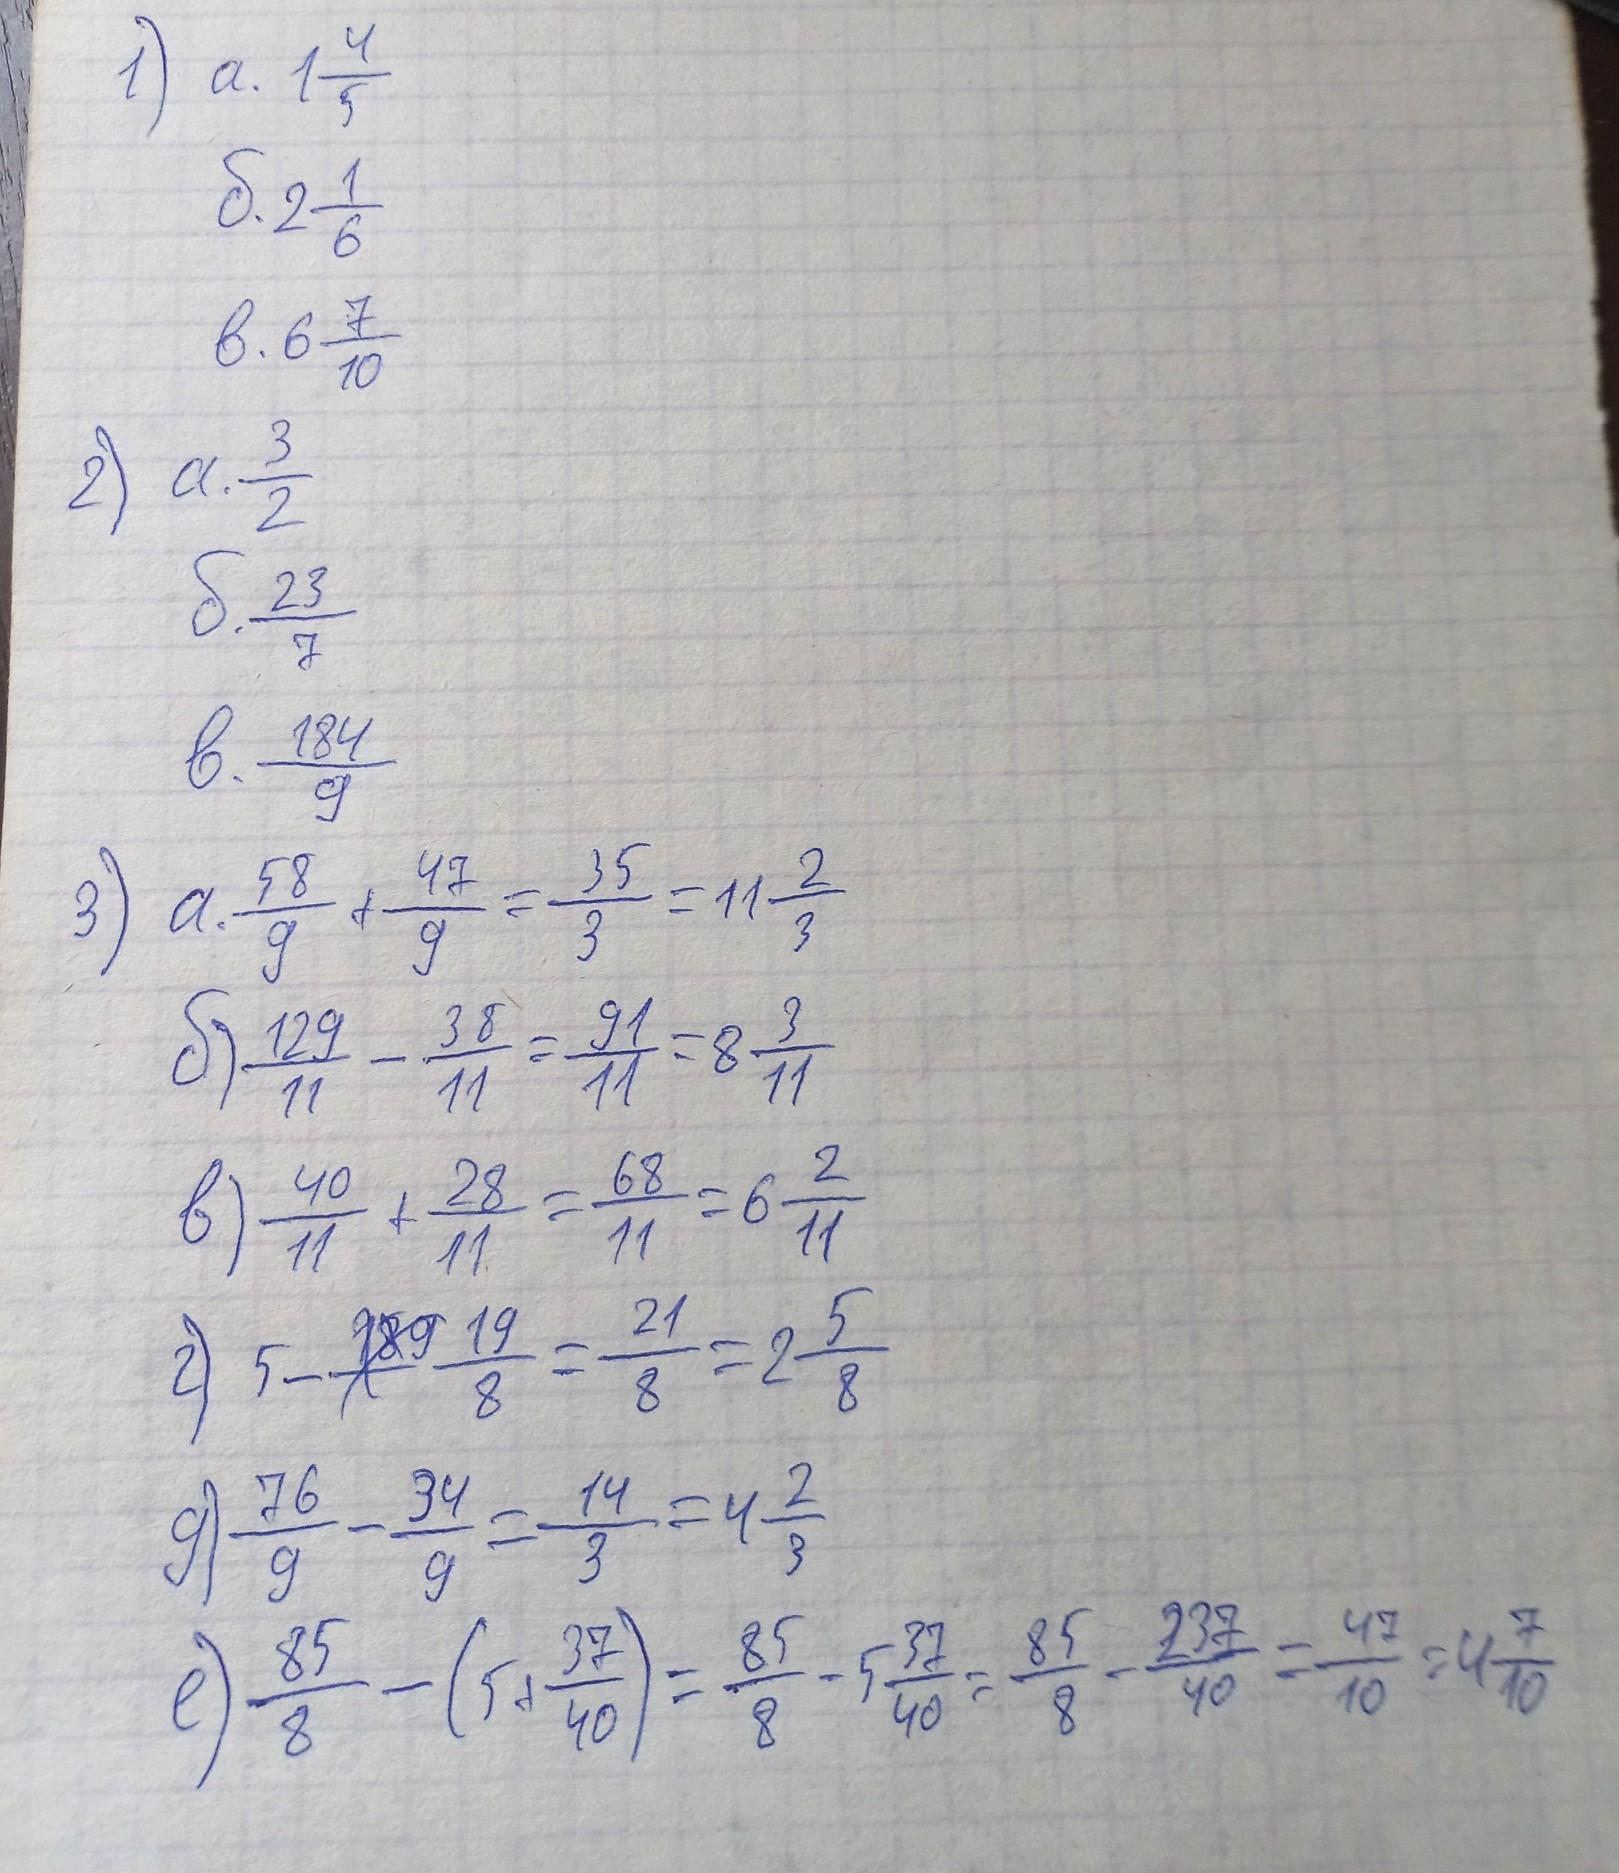 1) а. 1 4/5
б. 2 1/6
в. 6 7/10
2) а. 3/2
б. 23/7
в. 184/9
3) а. 58/9 + 47/9 = 35/3 = 11 2/3
б) 129/11 - 38/11 = 91/11 = 8 3/11
в) 40/11 + 28/11 = 68/11 = 6 2/11
г) 5 - 19/8 = 21/8 = 2 5/8
д) 76/9 - 34/9 = 14/3 = 4 2/3
е) 85/8 - (5 + 37/40) = 85/8 - 5 37/40 = 85/8 - 237/40 = 47/10 = 4 7/10